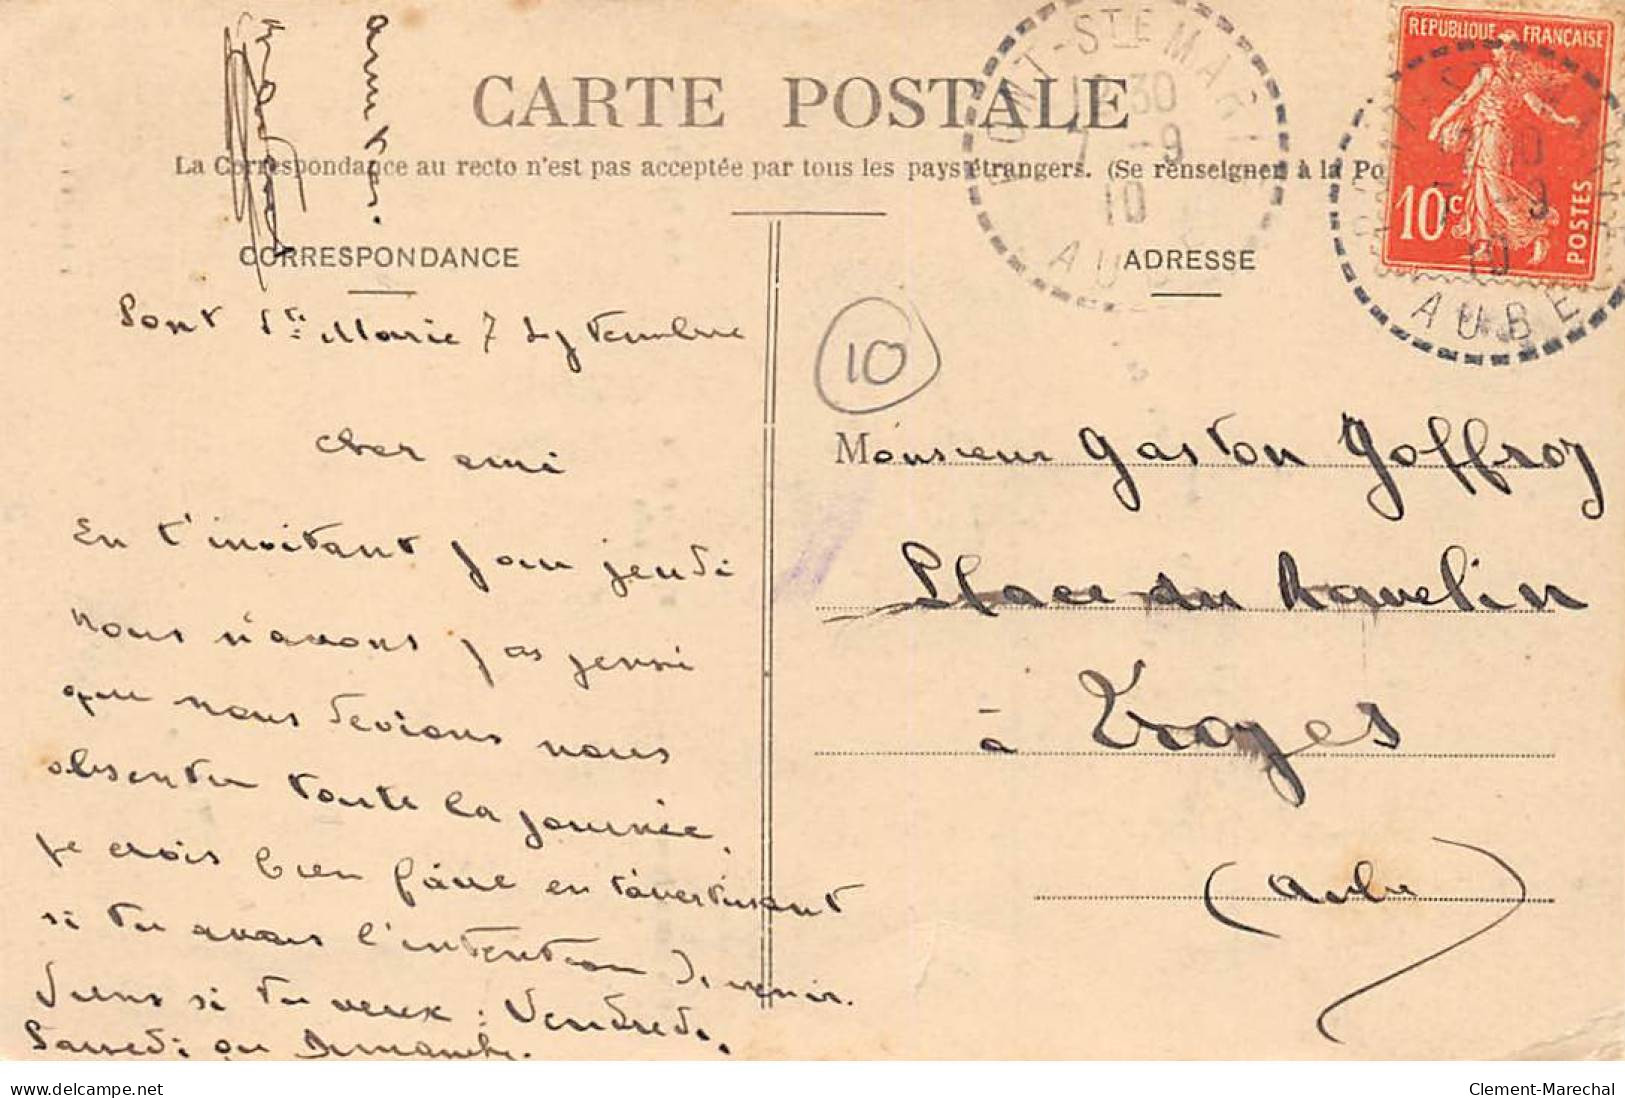 CARTE POSTALE
La Correspondance au recto n'est pas acceptée par tous les pays étrangers. (Se renseigner à la Po
CORRESPONDANCE
Pont Ste Marie 7 Septembre
Cher ami
En t'invitant pour jeudi
nous n'avons pas pensé
que nous devions nous
absenter toute la journée,
je crois bien faire en t'avertissant
si tu avais l'intention de venir.
Viens si tu veux : Vendredi,
Samedi ou Dimanche.
amitiés.
ADRESSE
REPUBLIQUE FRANÇAISE
10c
POSTES
PONT-STE MARIE
7 -9
10
AUBE
7 -9
10
AUBE
10
Monsieur Gaston Joffroy
Place du Ravelin
à Troyes
(Aube)
www.delcampe.net
Clement-Marechal